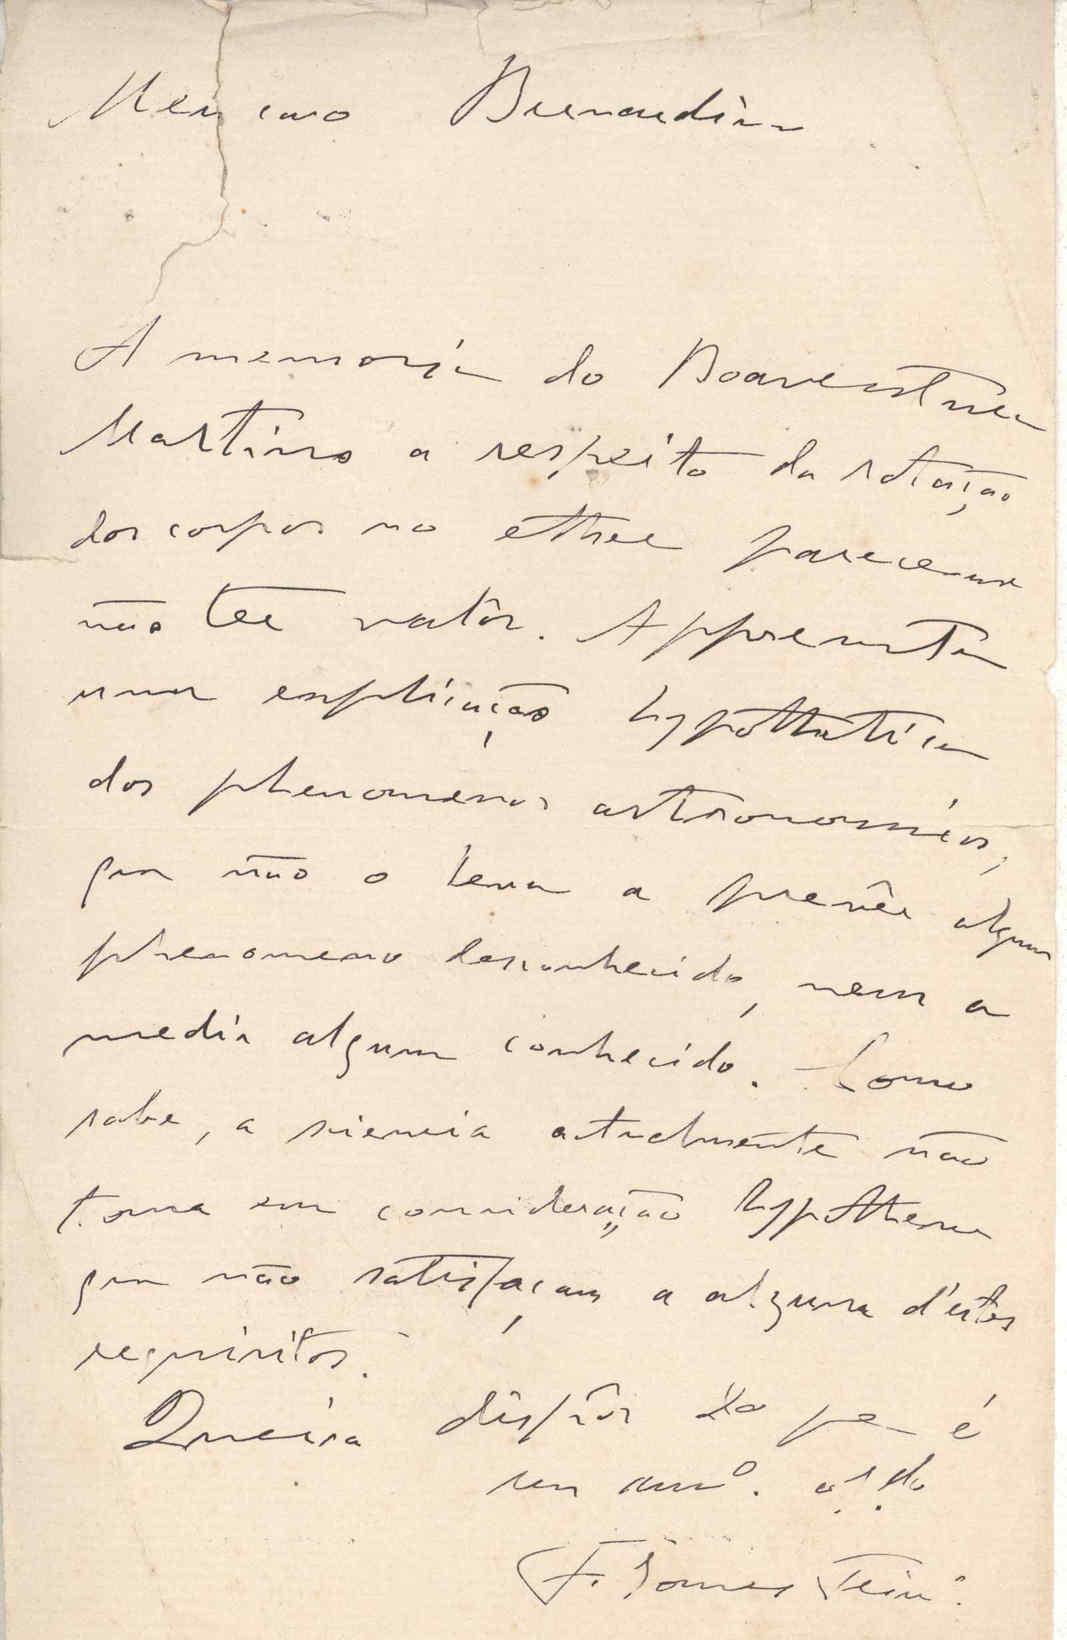 Meu caro Bernardino
A memoria do Boaventura
Martins a respeito da rotação
dos corpos no ether parece-me
não ter valôr. Appresenta
uma explicação hypothetica
dos phenomenos astronomicos,
que não o leva a prevêr algum
phenomeno desconhecido, nem a
medir algum conhecido. Como
sabe, a sciencia actualmente não
toma em consideração hypotheses
que não satisfaçam a alguma d'estes
requisitos.
Queira dispôr do que é
seu am.º
F. Gomes Teix.ª